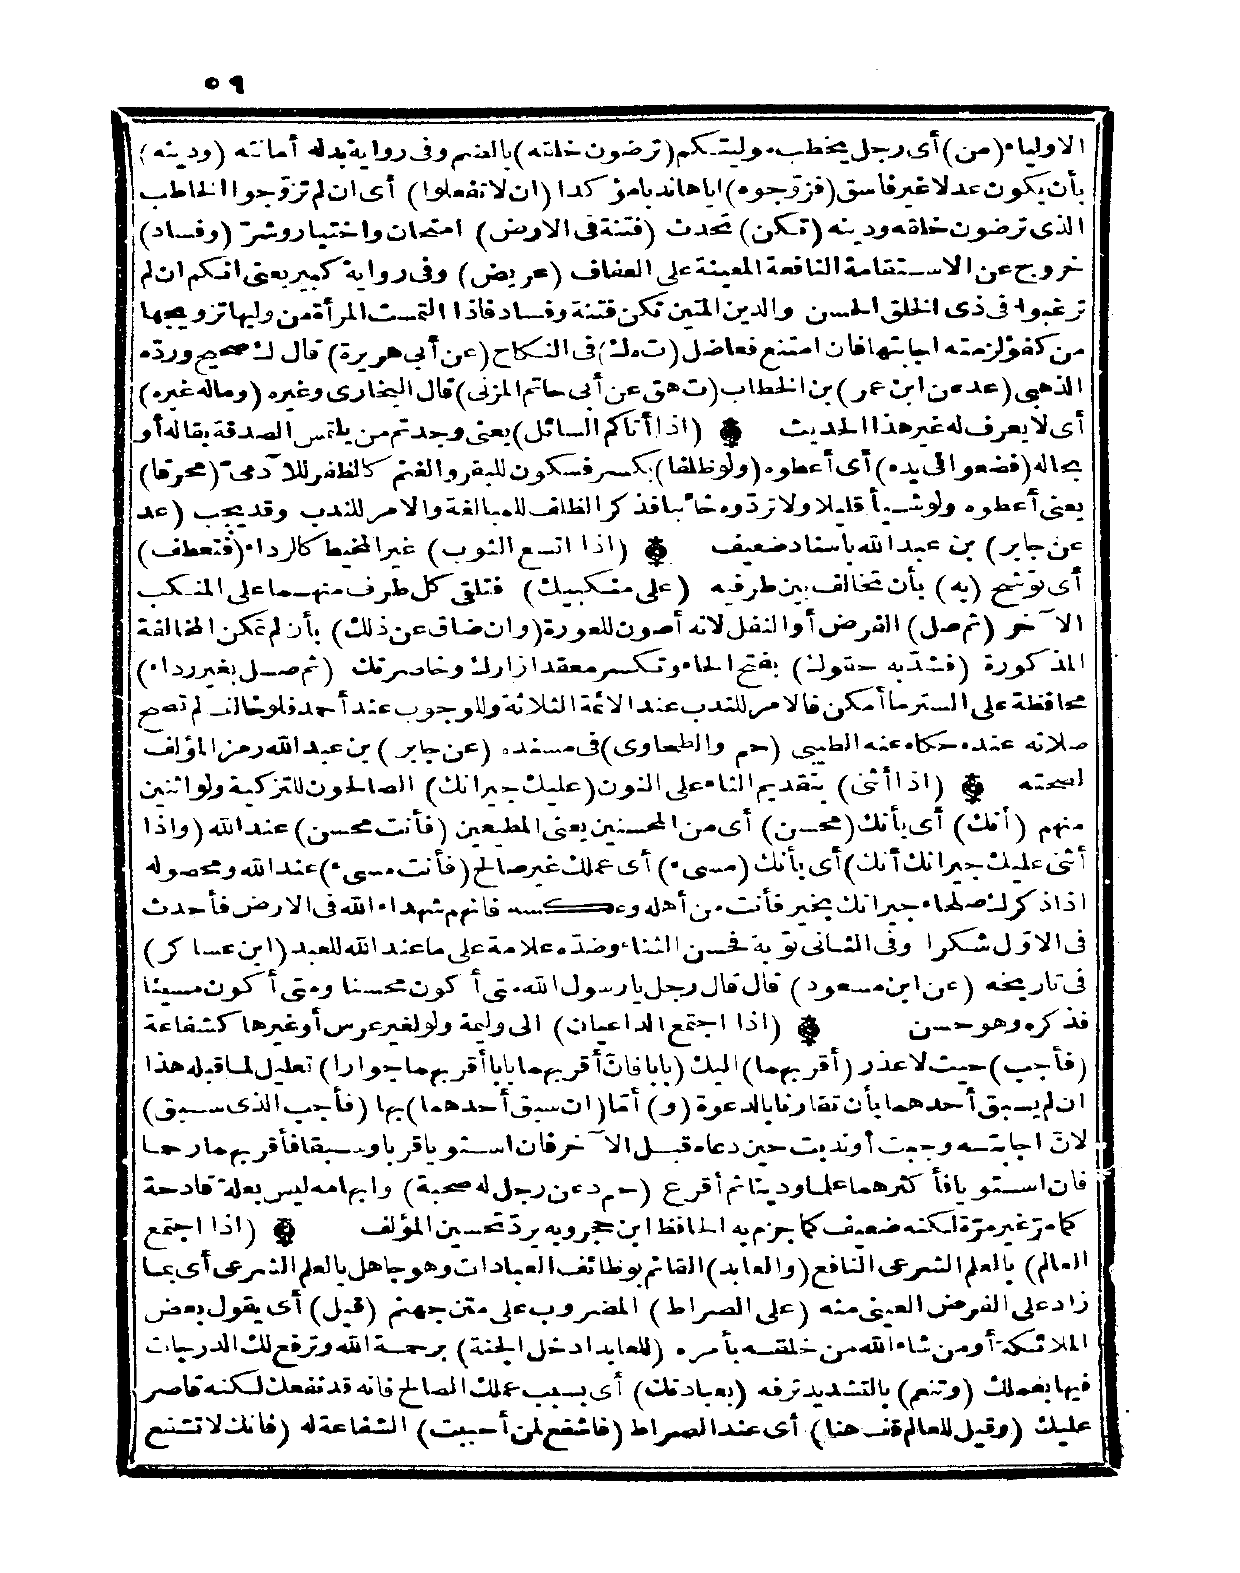 ٥٩
الاولياء (من) أى رجل يخطب موليتكم (ترضون خلقه) بالضم وفى رواية بدله أمانته (ودينه)
بأن يكون عدلا غير فاسق (فزوّجوه) اياها ندبا مؤكدا (ان لا تفعلوا) أى ان لم تزوّجوا الخاطب
الذى ترضون خلقه ودينه (تكن) تحدث (فتنة فى الارض) امتحان واختبار وشرّ (وفساد)
خروج عن الاستقامة النافعة المعينة على العفاف (عريض) وفى رواية كبير يعنى انكم ان لم
ترغبوا فى ذى الخلق الحسن والدين المتين تكن فتنة وفساد فاذا التمست المرأة من وليها تزويجها
من كفؤ لزمته اجابتها فان امتنع فعاضل (ت ه ك) فى النكاح (عن أبى هريرة) قال ك صحيح وردّه
الذهبى (عد عن ابن عمر) بن الخطاب (ت هق عن أبى حاتم المزنى) قال البخارى وغيره (وماله غيره)
أى لا يعرف له غير هذا الحديث (اذا أتاكم السائل) يعنى وجدتم من يلتمس الصدقة بقاله أو
بحاله (فضعوا فى يده) أى أعطوه (ولو ظلفا) بكسر فسكون للبقر والغنم كالظفر للآدمىّ (محرقا)
يعنى أعطوه ولو شيأ قليلا ولا تردّوه خائبا فذكر الظلف للمبالغة والامر للندب وقد يجب (عد
عن جابر) بن عبد الله باسناد ضعيف (اذا اتسع الثوب) غير المخيط كالرداء (فتعطف)
أى توشح (به) بأن تخالف بين طرفيه (على منكبيك) فتلقى كل طرف منهما على المنكب
الآخر (ثم صل) الفرض أو النفل لانه أصون للعورة (وان ضاق عن ذلك) بأن لم تمكن المخالفة
المذكورة (فشدّ به حقوك) بفتح الحاء وتكسر معقد ازارك وخاصرتك (ثم صل بغير رداء)
محافظة على الستر ما أمكن فالامر للندب عند الائمة الثلاثة وللوجوب عند أحمد فلو خالف لم تصح
صلاته عنده حكاه عنه الطيبى (حم والطحاوى) فى مسنده (عن جابر) بن عبد الله رمز المؤلف
لصحته (اذا أثنى) بتقديم الثاء على النون (عليك جيرانك) الصالحون للتزكية ولو اثنين
منهم (أنك) أى بأنك (محسن) أى من المحسنين يعنى المطيعين (فأنت محسن) عند الله (واذا
أثنى عليك جيرانك أنك) أى بأنك (مسىء) أى عملك غير صالح (فأنت مسىء) عند الله ومحصوله
اذا ذكرك صلحاء جيرانك بخير فأنت من أهله وعكسه فانهم شهداء الله فى الارض فأحدث
فى الاوّل شكرا وفى الثانى توبة فحسن الثناء وضدّه علامة على ما عند الله للعبد (ابن عساكر)
فى تاريخه (عن ابن مسعود) قال قال رجل يا رسول الله متى أكون محسنا ومتى أكون مسيئا
فذكره وهو حسن (اذا اجتمع الداعيان) الى وليمة ولو لغير عرس أو غيرها كشفاعة
(فأجب) حيث لا عذر (أقربهما) اليك (بابا فانّ أقربهما بابا أقربهما جوارا) تعليل لما قبله هذا
ان لم يسبق أحدهما بأن تقارنا بالدعوة (و) أمّا (ان سبق أحدهما) بها (فأجب الذى سبق)
لانّ اجابته وجبت أو ندبت حين دعاه قبل الآخر فان استويا قربا وسبقا فأقربهما رحما
فان استويا فأكثرهما علما ودينا ثم أقرع (حم د عن رجل له صحبة) وابهامه ليس بعلة قادحة
كما مرّ غير مرّة لكنه ضعيف كما جزم به الحافظ ابن حجر وبه يردّ تحسين المؤلف (اذا اجتمع
العالم) بالعلم الشرعى النافع (والعابد) القائم بوظائف العبادات وهو جاهل بالعلم الشرعى أى بما
زاد على الفرض العينى منه (على الصراط) المضروب على متن جهنم (قيل) أى يقول بعض
الملائكة أو من شاء الله من خلقه بأمره (للعابد ادخل الجنة) برحمة الله وترفع لك الدرجات
فيها بعملك (وتنعم) بالتشديد ترفه (بعبادتك) أى بسبب عملك الصالح فانه قد نفعك لكنه قاصر
عليك (وقيل للعالم قف هنا) أى عند الصراط (فاشفع لمن أحببت) الشفاعة له (فانك لا تشفع